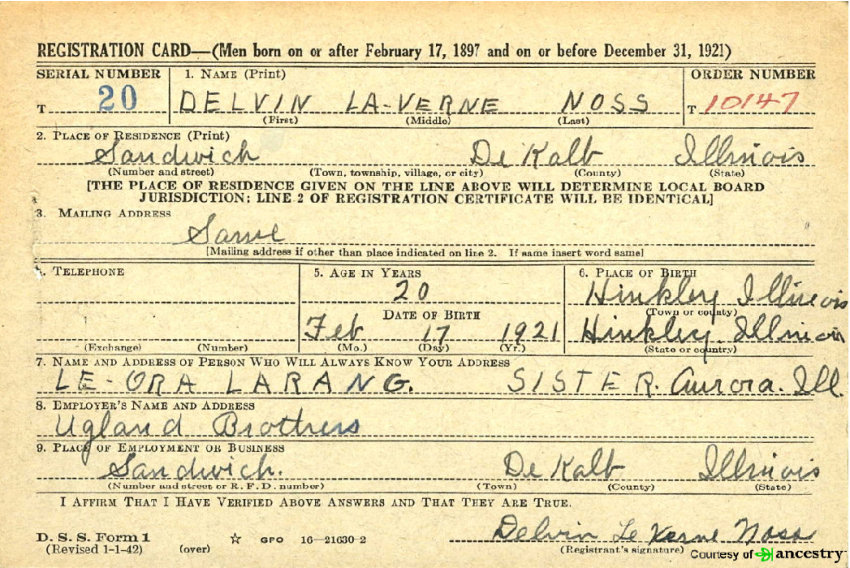 REGISTRATION CARD—(Men born on or after February 17, 1897 and on or before December 31, 1921)
SERIAL NUMBER 1. NAME (Print) ORDER NUMBER
T 20 DELVIN LA-VERNE NOSS T 10147
(First) (Middle) (Last)
2. PLACE OF RESIDENCE (Print)
Sandwich De Kalb Illinois
(Number and street) (Town, township, village, or city) (County) (State)
[THE PLACE OF RESIDENCE GIVEN ON THE LINE ABOVE WILL DETERMINE LOCAL BOARD
JURISDICTION; LINE 2 OF REGISTRATION CERTIFICATE WILL BE IDENTICAL]
3. MAILING ADDRESS
Same
[Mailing address if other than place indicated on line 2. If same insert word same]
4. TELEPHONE 5. AGE IN YEARS 6. PLACE OF BIRTH
20 Hinkley Illinois
DATE OF BIRTH (Town or county)
Feb 17 1921 Hinkley, Illinois
(Exchange) (Number) (Mo.) (Day) (Yr.) (State or country)
7. NAME AND ADDRESS OF PERSON WHO WILL ALWAYS KNOW YOUR ADDRESS
LE-ORA LARANG. SISTER. Aurora. Ill.
8. EMPLOYER'S NAME AND ADDRESS
Ugland Brothers
9. PLACE OF EMPLOYMENT OR BUSINESS
Sandwich. De Kalb Illinois
(Number and street or R. F. D. number) (Town) (County) (State)
I AFFIRM THAT I HAVE VERIFIED ABOVE ANSWERS AND THAT THEY ARE TRUE.
Delvin Le Verne Noss
D. S. S. Form 1
(Revised 1-1-42) (over) ☆ GPO 16—21630-2 (Registrant's signature) Courtesy of ancestry